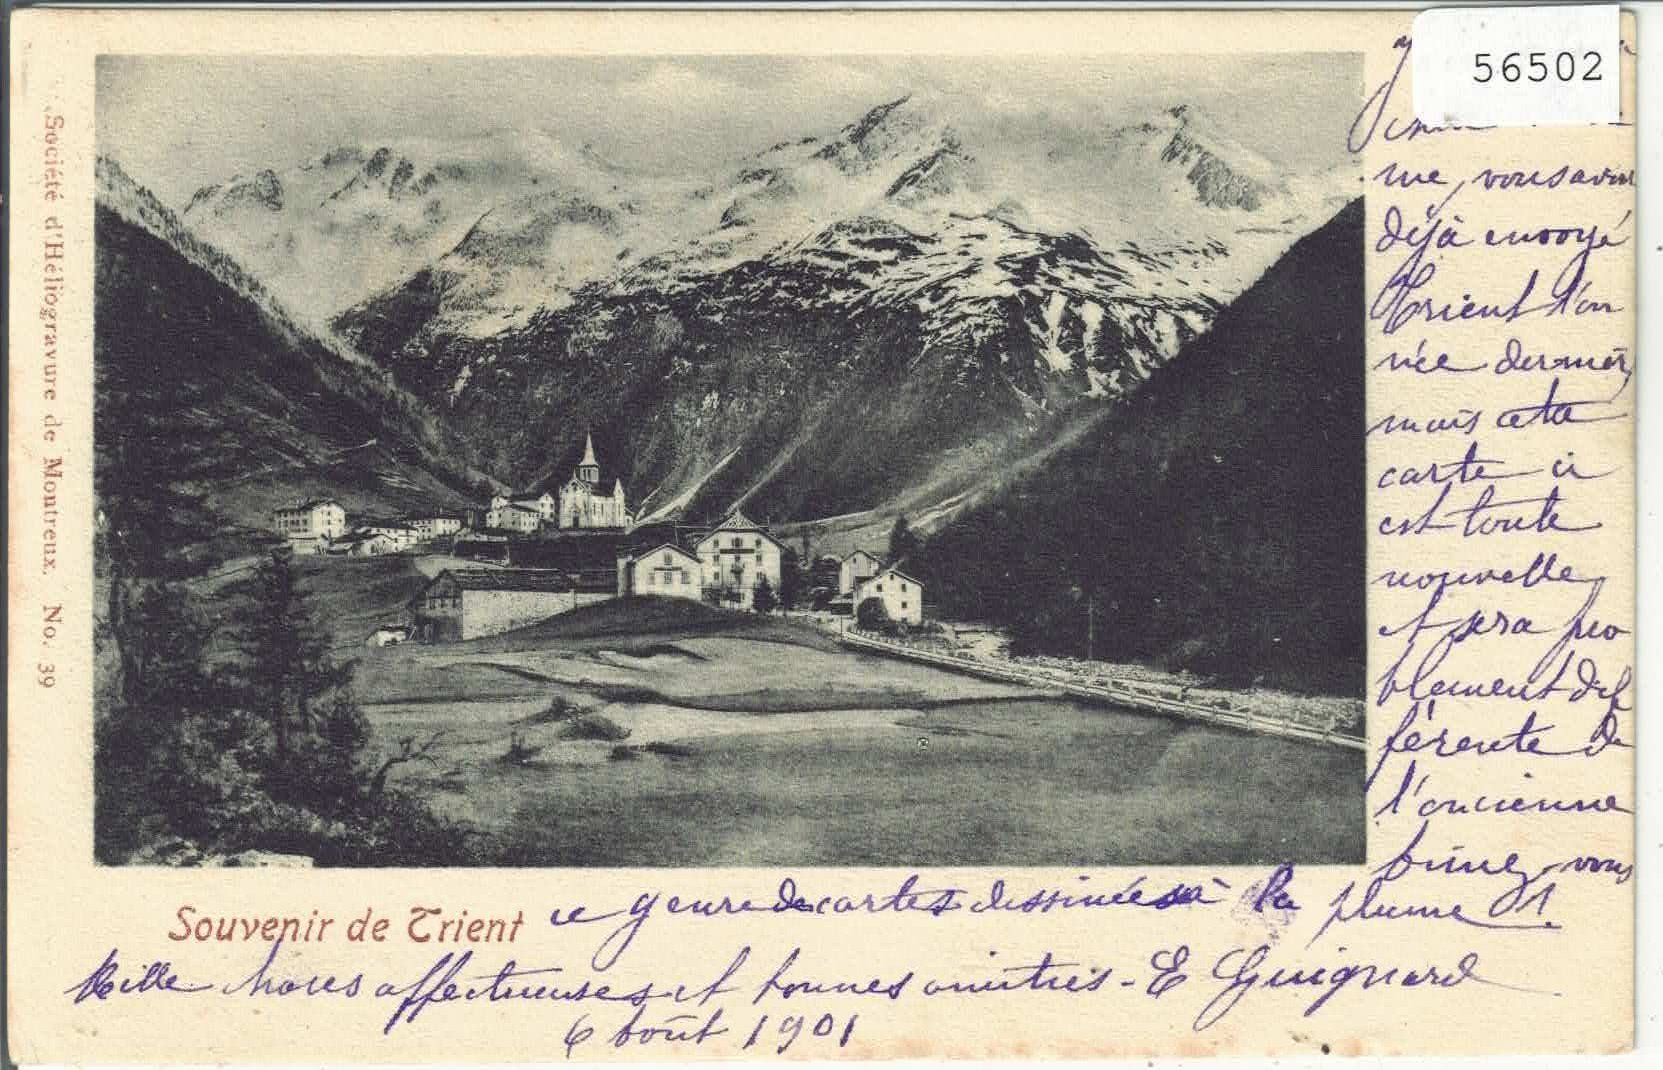 56502
me, vous avoir
déjà envoyé
Trient l'an
née dernière,
mais cette
carte ci
est toute
nouvelle
et sera pro
blement dif
férente de
l'ancienne
aimez-vous
ce genre de cartes dessinées à la plume ?
Mille choses affectueuses et bonnes amitiés - E Guignard
6 août 1901
Souvenir de Trient
Société d'Héliogravure de Montreux. No. 39